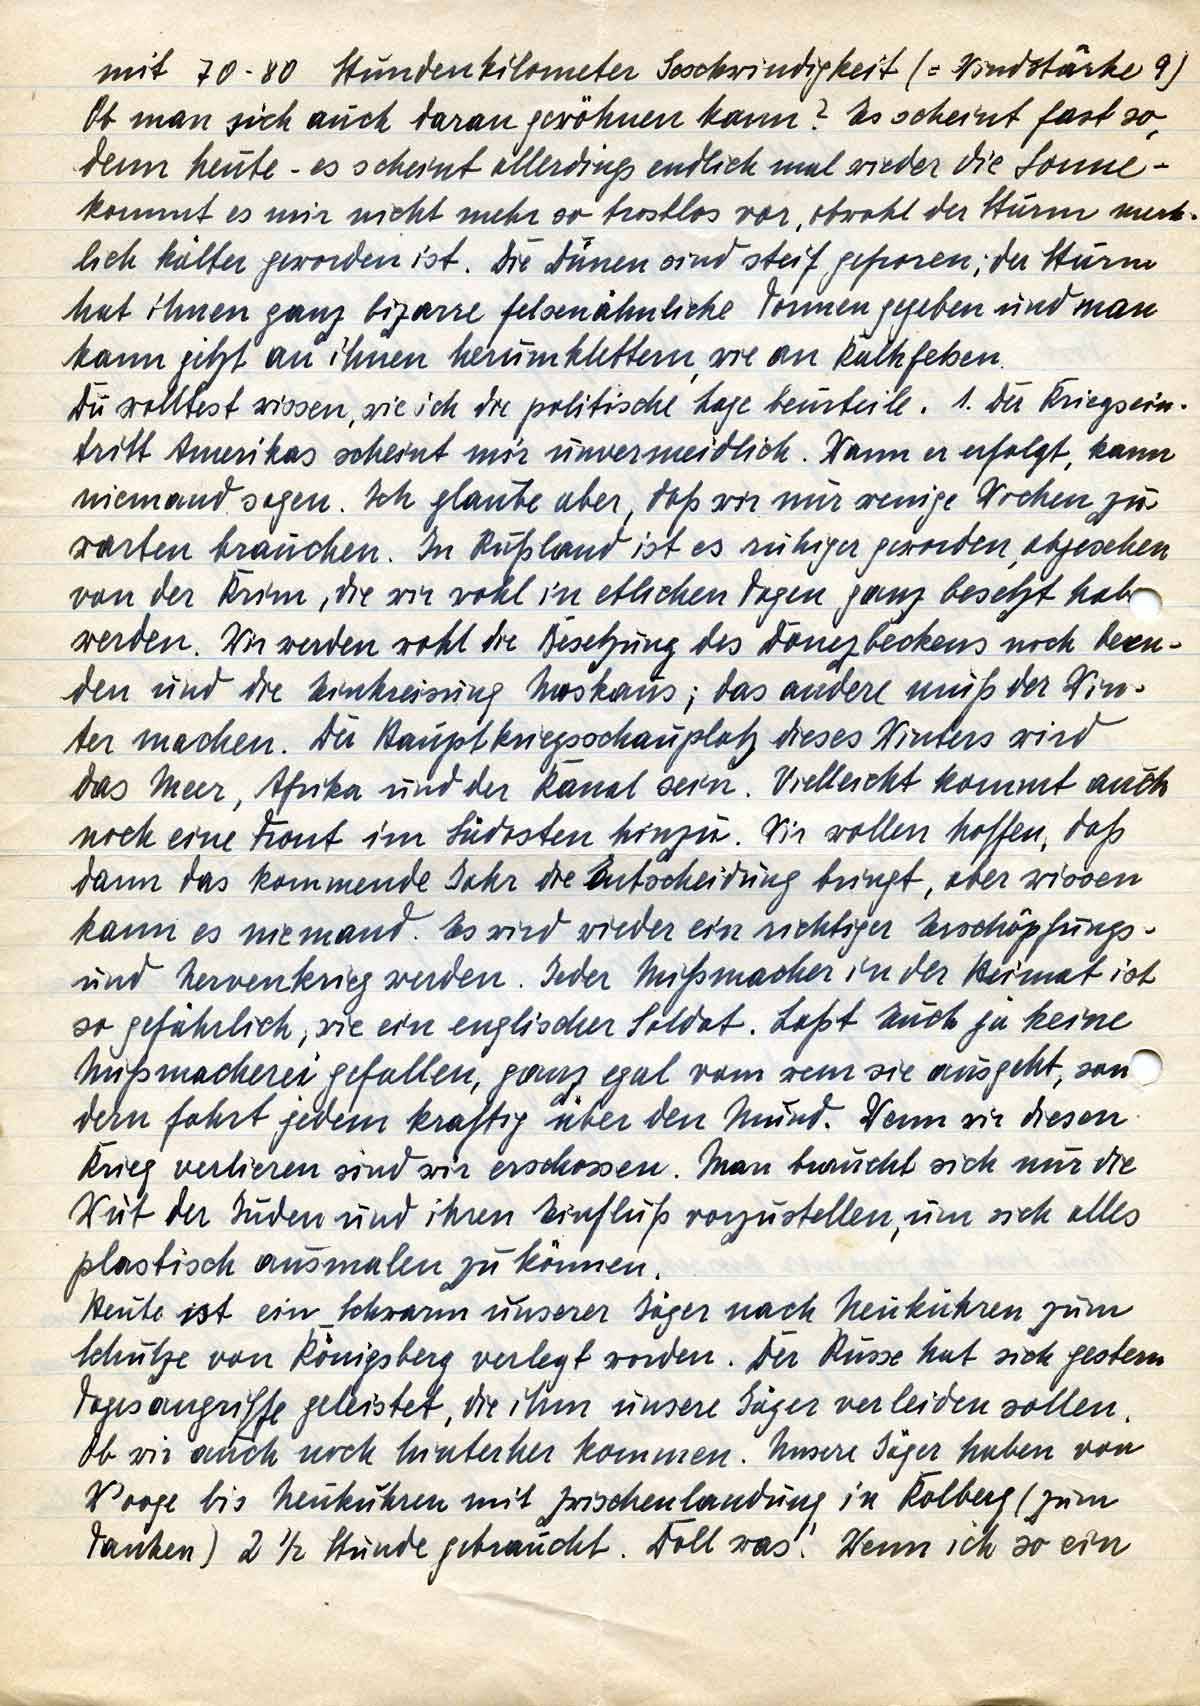 mit 70-80 Stundenkilometer Geschwindigkeit (= Windstärke 9)
Ob man sich auch daran gewöhnen kann? Es scheint fast so,
denn heute - es scheint allerdings endlich mal wieder die Sonne -
kommt es mir nicht mehr so trostlos vor, obwohl der Sturm merk-
lich kälter geworden ist. Die Dünen sind steif gefroren; der Sturm
hat ihnen ganz bizarre felsenähnliche Formen gegeben und man
kann jetzt an ihnen herumklettern, wie an Kalkfelsen.
Du wolltest wissen, wie ich die politische Lage beurteile. 1. Der Kriegsein-
tritt Amerikas scheint mir unvermeidlich. Wann er erfolgt, kann
niemand sagen. Ich glaube aber, daß wir nur wenige Wochen zu
warten brauchen. In Rußland ist es ruhiger geworden, abgesehen
von der Krim, die wir wohl in etlichen Tagen ganz besetzt habe
werden. Wir werden wohl die Besetzung des Donezbeckens noch been-
den und die Einkreisung Moskaus; das andere muß der Win-
ter machen. Der Hauptkriegsschauplatz dieses Winters wird
das Meer, Afrika und der Kanal sein. Vielleicht kommt auch
noch eine Front im Südosten hinzu. Wir wollen hoffen, daß
dann das kommende Jahr die Entscheidung bringt, aber wissen
kann es niemand. Es wird wieder ein richtiger Erschöpfungs-
und Nervenkrieg werden. Jeder Mißmacher in der Heimat ist
so gefährlich, wie ein englischer Soldat. Laßt Euch ja keine
Mißmacherei gefallen, ganz egal vom wem sie ausgeht, son
dern fahrt jedem kräftig über den Mund. Wenn wir diesen
Krieg verlieren sind wir erschossen. Man braucht sich nur die
Wut der Juden und ihren Einfluß vorzustellen, um sich alles
plastisch ausmalen zu können.
Heute ist ein Schwarm unserer Jäger nach Neukuhren zum
Schutze von Königsberg verlegt worden. Der Russe hat sich gestern
Tagesangriffe geleistet, die ihm unsere Jäger verleiden sollen.
Ob wir auch noch hinterher kommen. Unsere Jäger haben von
Wooge bis Neukuhren mit Zwischenlandung in Kolberg (zum
Tanken) 2 1/2 Stunde gebraucht. Toll was! Wenn ich so ein